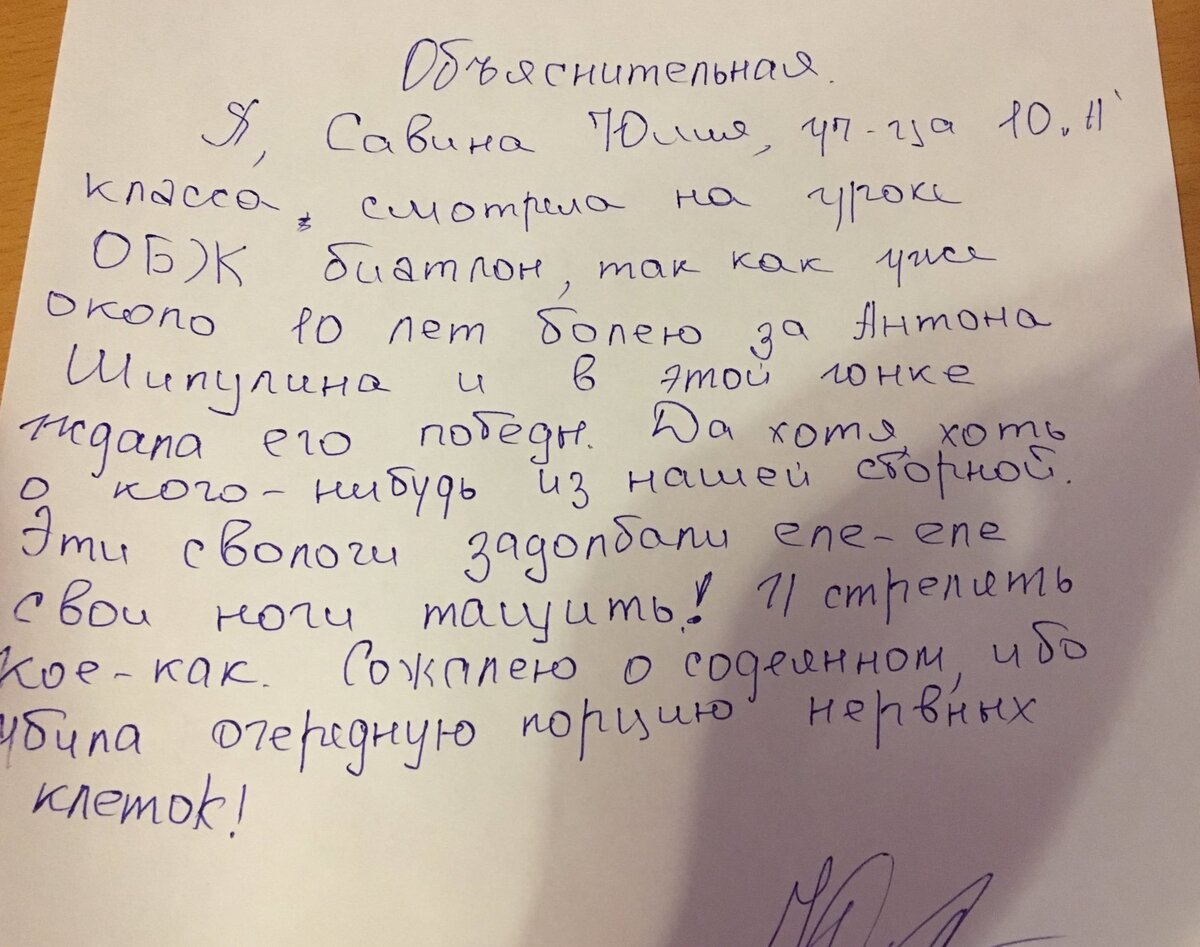 Объяснительная.
Я, Савина Юлия, уч-ца 10 „А"
класса, смотрела на уроке
ОБЖ биатлон, так как уже
около 10 лет болею за Антона
Шипулина и в этой гонке
ждала его победы. Да хотя, хоть
о кого-нибудь из нашей сборной.
Эти сволочи задолбали еле-еле
свои ноги тащить! И стрелять
кое-как. Сожалею о содеянном, ибо
убила очередную порцию нервных
клеток!